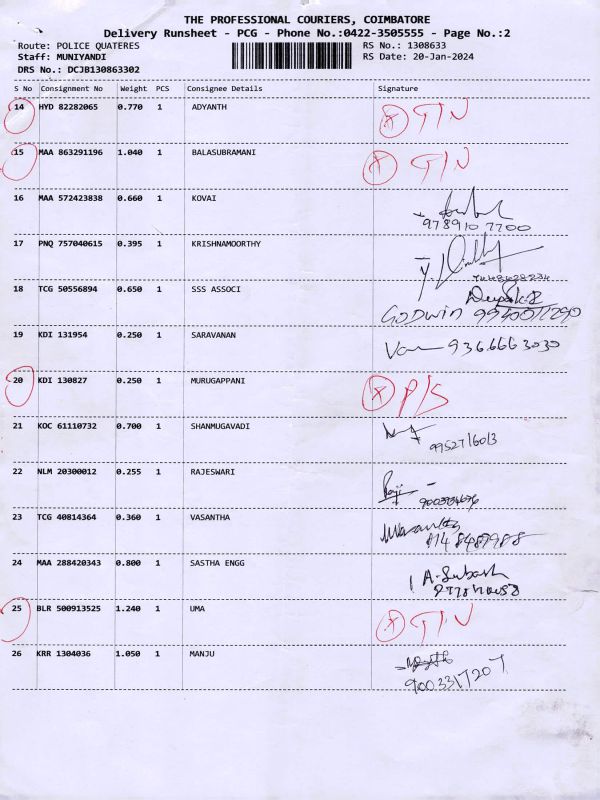 THE PROFESSIONAL COURIERS, COIMBATORE
Delivery Runsheet - PCG - Phone No.:0422-3505555 - Page No.:2
Route: POLICE QUATERES RS No.: 1308633
Staff: MUNIYANDI RS Date: 20-Jan-2024
DRS No.: DCJB130863302
S No Consignment No Weight PCS Consignee Details Signature
14 HYD 82282065 0.770 1 ADYANTH
15 MAA 863291196 1.040 1 BALASUBRAMANI
16 MAA 572423838 0.660 1 KOVAI
9789107700
17 PNQ 757040615 0.395 1 KRISHNAMOORTHY
18 TCG 50556894 0.650 1 SSS ASSOCI
GODWIN
19 KDI 131954 0.250 1 SARAVANAN
9366663030
20 KDI 130827 0.250 1 MURUGAPPANI P/S
21 KOC 61110732 0.700 1 SHANMUGAVADI
9952716013
22 NLM 20300012 0.255 1 RAJESWARI
Raji
23 TCG 40814364 0.360 1 VASANTHA
24 MAA 288420343 0.800 1 SASTHA ENGG
A. Subash
25 BLR 500913525 1.240 1 UMA
26 KRR 1304036 1.050 1 MANJU
9003317207